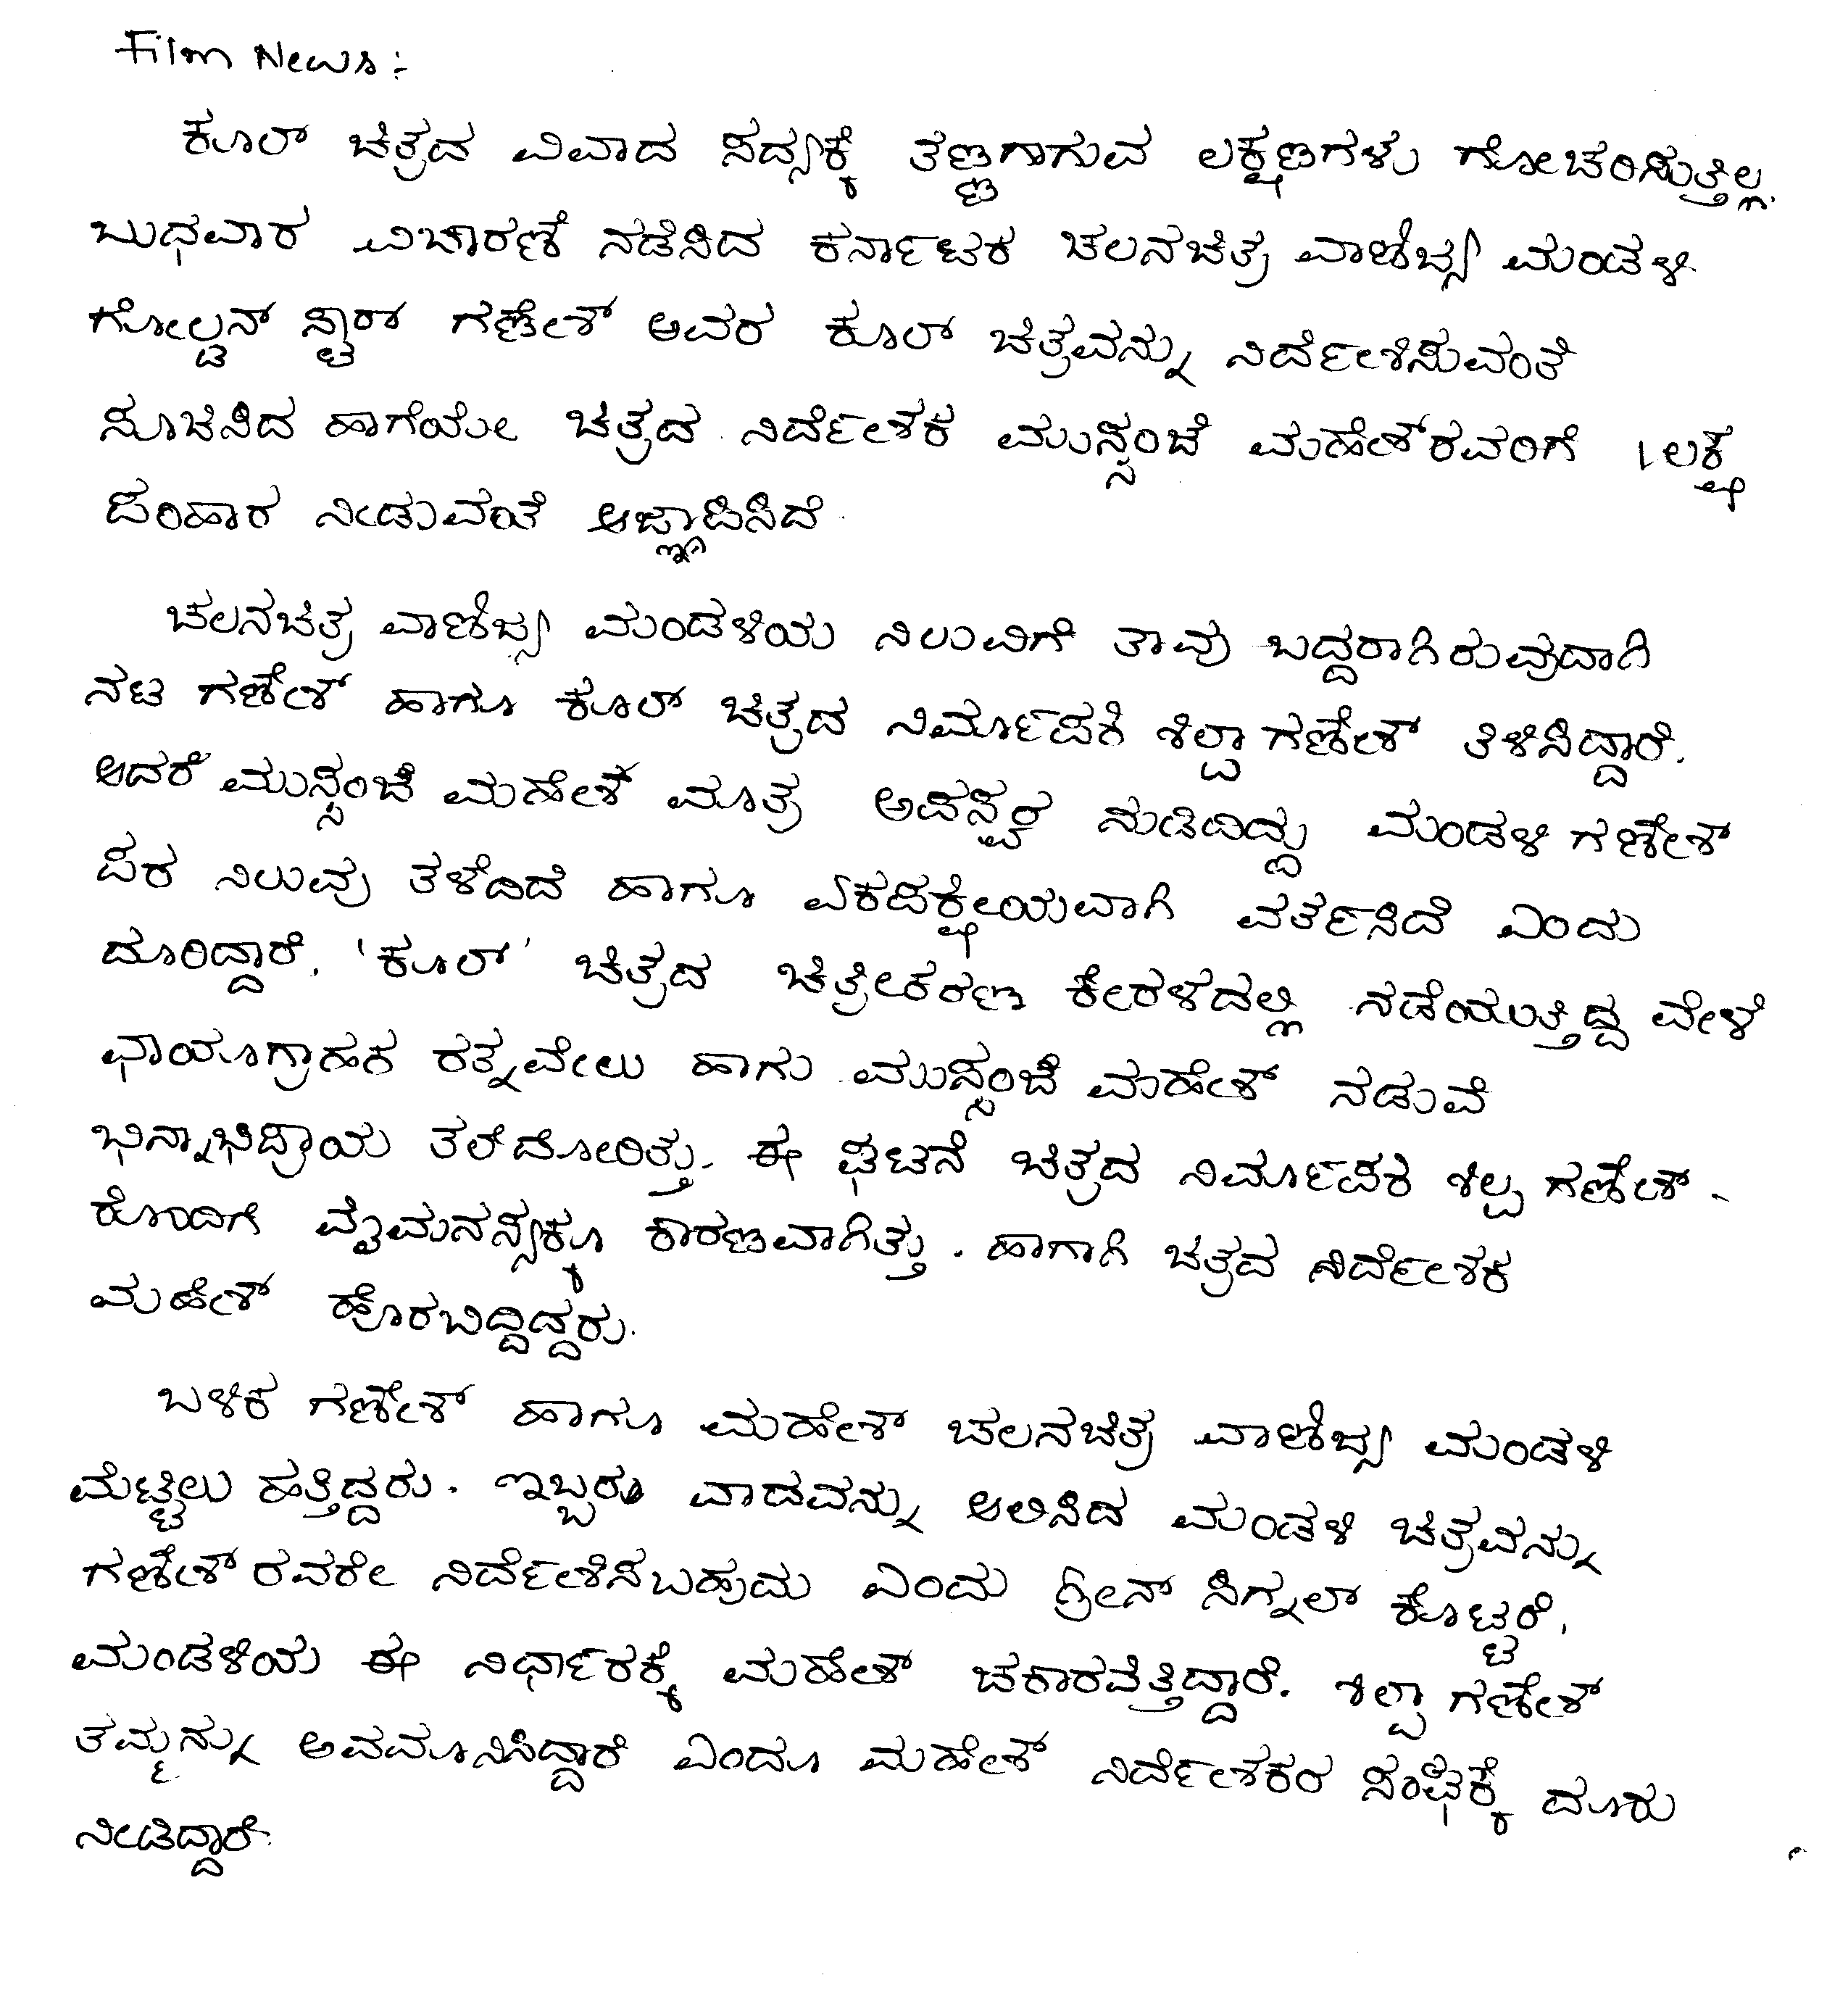 Film News :-
ಕೂಲ್ ಚಿತ್ರದ ವಿವಾದ ಸದ್ಯಕ್ಕೆ ತಣ್ಣಗಾಗುವ ಲಕ್ಷಣಗಳು ಗೋಚರಿಸುತ್ತಿಲ್ಲ.
ಬುಧವಾರ ವಿಚಾರಣೆ ನಡೆಸಿದ ಕರ್ನಾಟಕ ಚಲನಚಿತ್ರ ವಾಣಿಜ್ಯ ಮಂಡಳಿ
ಗೋಲ್ಡನ್ ಸ್ಟಾರ್ ಗಣೇಶ್ ಅವರ ಕೂಲ್ ಚಿತ್ರವನ್ನು ನಿರ್ದೇಶಿಸುವಂತೆ
ಸೂಚಿಸಿದ ಹಾಗೆಯೇ ಚಿತ್ರದ ನಿರ್ದೇಶಕ ಮುಸ್ಸಂಜೆ ಮಹೇಶ್‌ರವರಿಗೆ ೧ಲಕ್ಷ
ಪರಿಹಾರ ನೀಡುವಂತೆ ಆಜ್ಞಾಪಿಸಿದೆ
ಚಲನಚಿತ್ರ ವಾಣಿಜ್ಯ ಮಂಡಳಿಯ ನಿಲುವಿಗೆ ತಾವು ಬದ್ದರಾಗಿರುವುದಾಗಿ
ನಟ ಗಣೇಶ್ ಹಾಗೂ ಕೂಲ್ ಚಿತ್ರದ ನಿರ್ಮಾಪಕಿ ಶಿಲ್ಪಾ ಗಣೇಶ್ ತಿಳಿಸಿದ್ದಾರೆ.
ಆದರೆ ಮುಸ್ಸಂಜೆ ಮಹೇಶ್ ಮಾತ್ರ ಅಪಸ್ವರ ನುಡಿದಿದ್ದು ಮಂಡಳಿ ಗಣೇಶ್
ಪರ ನಿಲುವು ತಳೆದಿದೆ ಹಾಗೂ ಏಕಪಕ್ಷೀಯವಾಗಿ ವರ್ತಿಸಿದೆ ಎಂದು
ದೂರಿದ್ದಾರೆ. 'ಕೂಲ್' ಚಿತ್ರದ ಚಿತ್ರೀಕರಣ ಕೇರಳದಲ್ಲಿ ನಡೆಯುತ್ತಿದ್ದ ವೇಳೆ
ಛಾಯಾಗ್ರಾಹಕ ರತ್ನವೇಲು ಹಾಗು ಮುಸ್ಸಂಜೆ ಮಹೇಶ್ ನಡುವೆ
ಭಿನ್ನಾಭಿಪ್ರಾಯ ತಲೆದೋರಿತ್ತು. ಈ ಘಟನೆ ಚಿತ್ರದ ನಿರ್ಮಾಪಕಿ ಶಿಲ್ಪ ಗಣೇಶ್-
ರೊಂದಿಗೆ ವೈಮನಸ್ಯಕ್ಕೂ ಕಾರಣವಾಗಿತ್ತು. ಹಾಗಾಗಿ ಚಿತ್ರದ ನಿರ್ದೇಶಕ
ಮಹೇಶ್ ಹೊರಬಿದ್ದಿದ್ದರು.
ಬಳಿಕ ಗಣೇಶ್ ಹಾಗೂ ಮಹೇಶ್ ಚಲನಚಿತ್ರ ವಾಣಿಜ್ಯ ಮಂಡಳಿ
ಮೆಟ್ಟಿಲು ಹತ್ತಿದ್ದರು. ಇಬ್ಬರೂ ವಾದವನ್ನು ಆಲಿಸಿದ ಮಂಡಳಿ ಚಿತ್ರವನ್ನು
ಗಣೇಶ್ ರವರೇ ನಿರ್ದೇಶಿಸಬಹುದು ಎಂದು ಗ್ರೀನ್ ಸಿಗ್ನಲ್ ಕೊಟ್ಟರೆ,
ಮಂಡಳಿಯ ಈ ನಿರ್ಧಾರಕ್ಕೆ ಮಹೇಶ್ ಚಕಾರವೆತ್ತಿದ್ದಾರೆ. ಶಿಲ್ಪಾ ಗಣೇಶ್
ತಮ್ಮನ್ನು ಅವಮಾನಿಸಿದ್ದಾರೆ ಎಂದೂ ಮಹೇಶ್ ನಿರ್ದೇಶಕರ ಸಂಘಕ್ಕೆ ದೂರು
ನೀಡಿದ್ದಾರೆ.